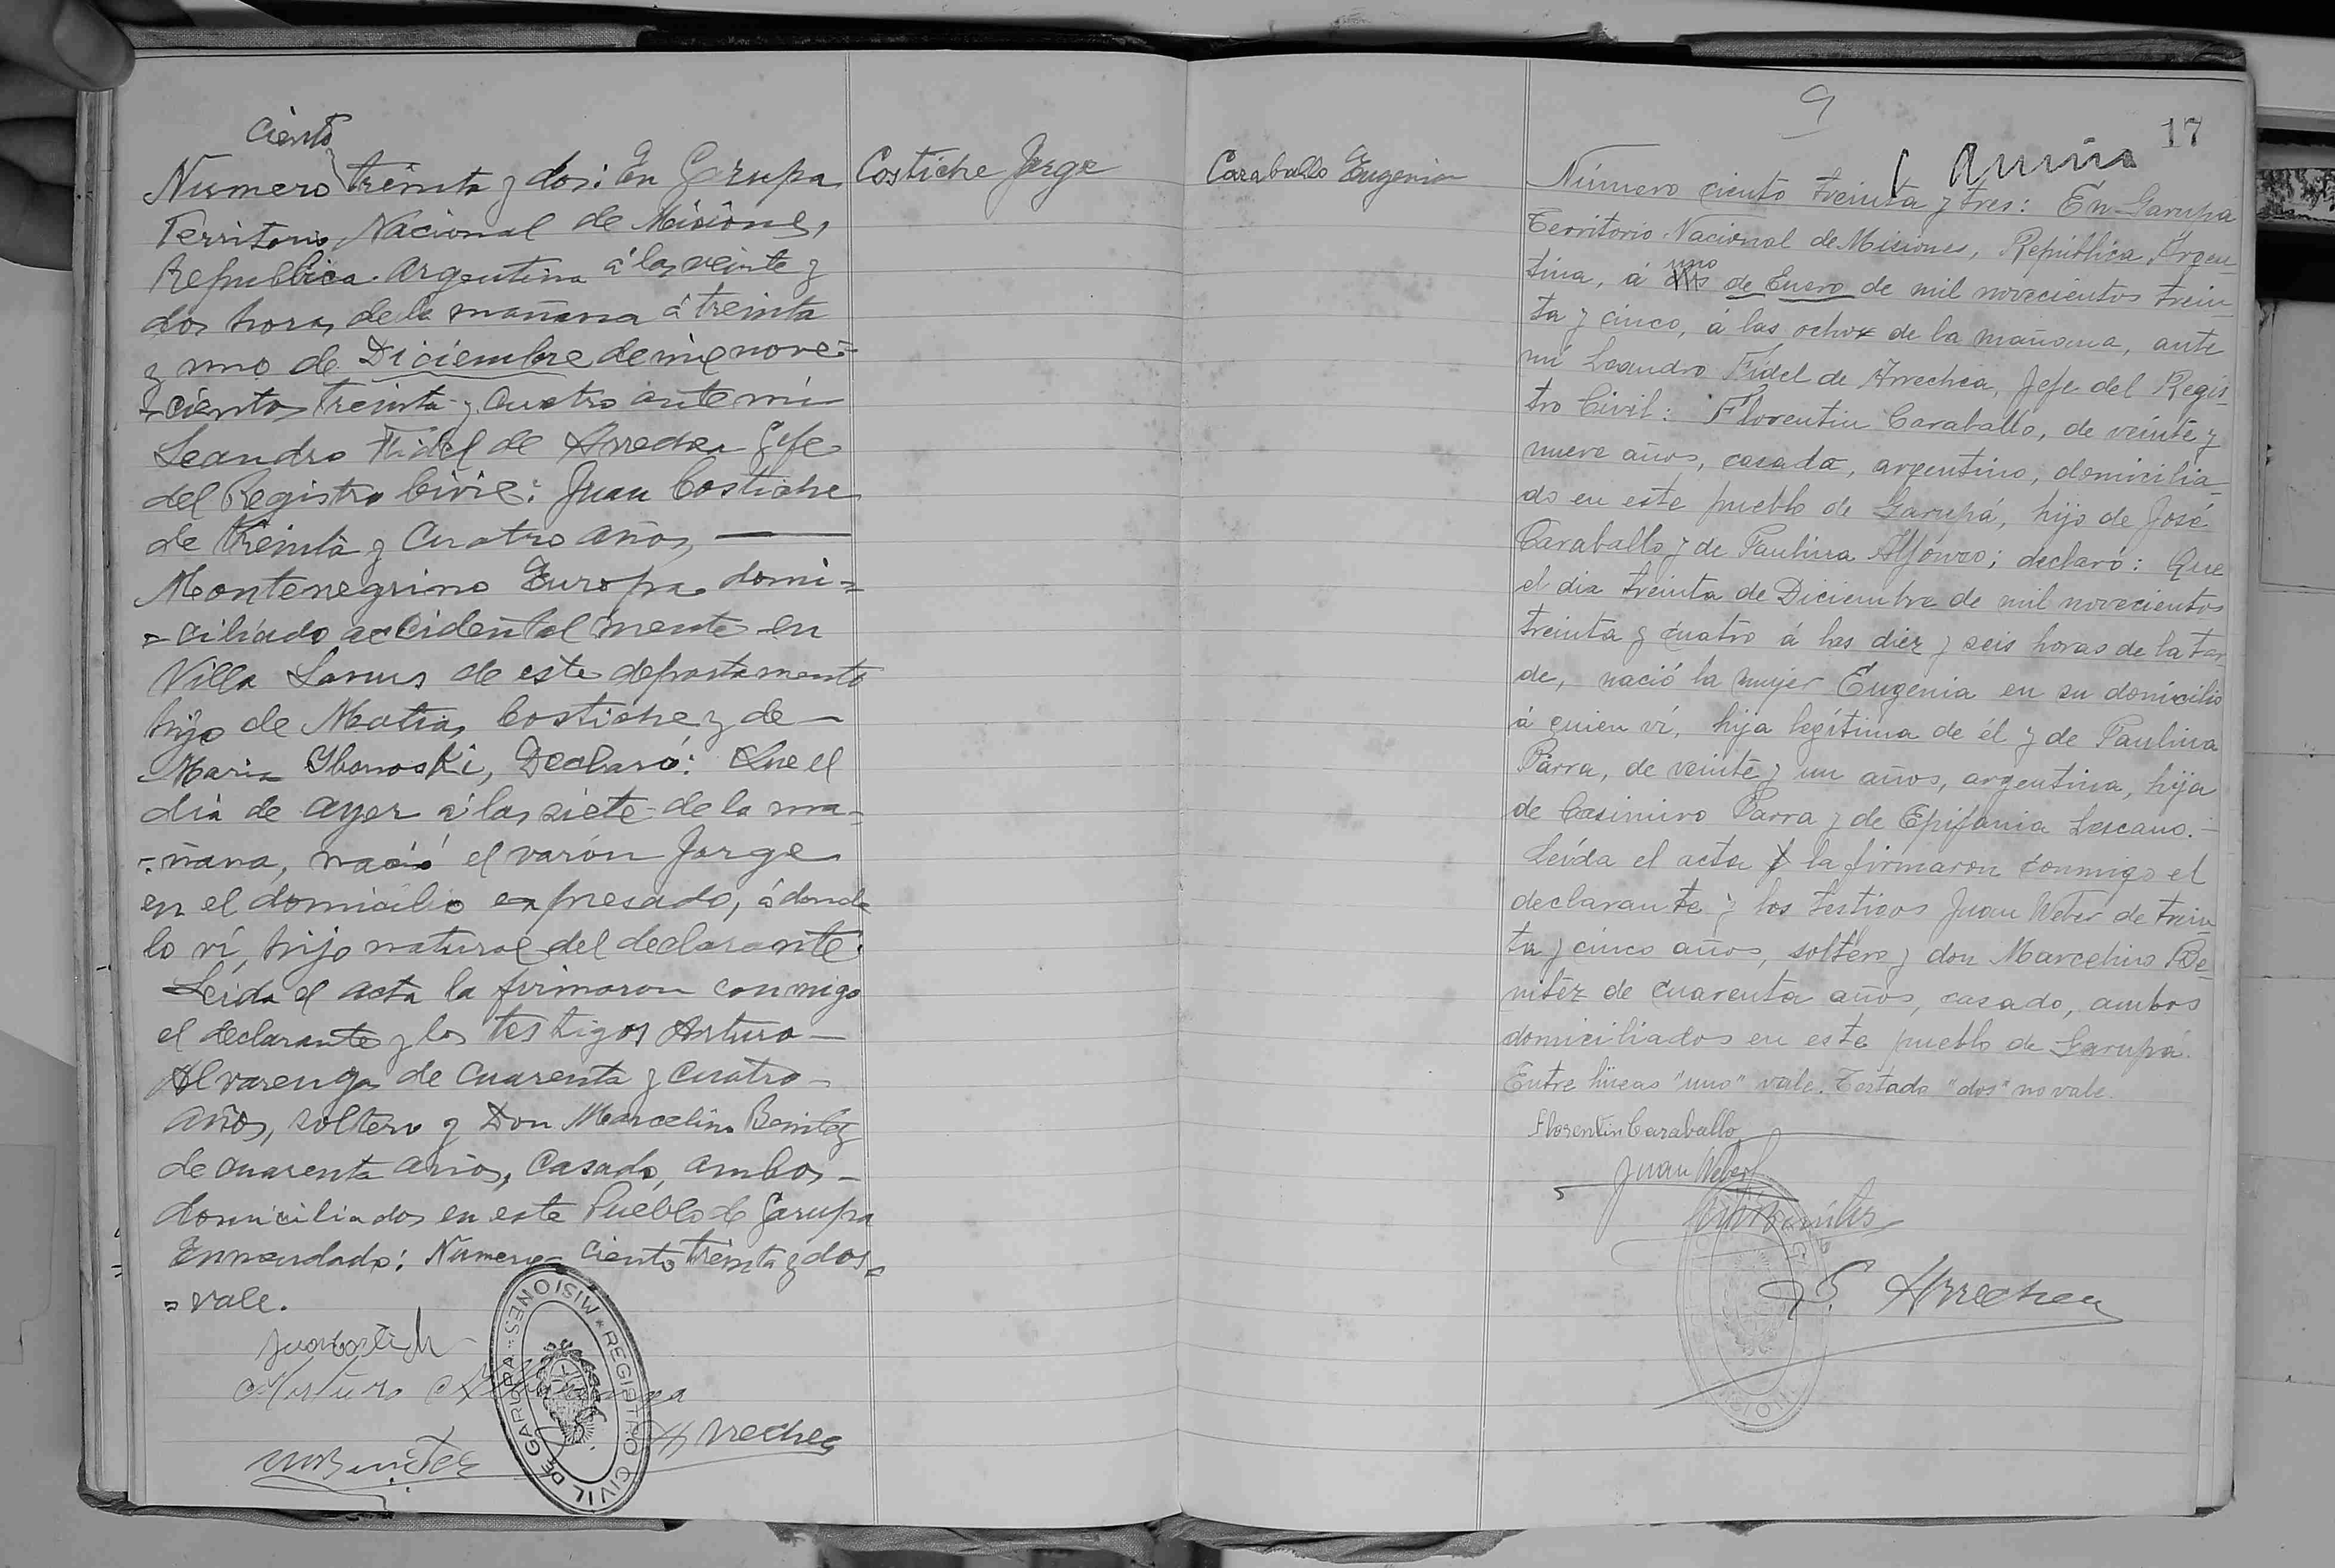 Ciento
Numero treinta y dos: En Garupa
Territorio Nacional de Misiones,
Republica Argentina á las veinte y
dos horas de la mañana á treinta
y uno de Diciembre de mil nove=
=cientos treinta y cuatro ante mi
Leandro Fidel de Arrechea Gefe
del Registro Civil: Juan Costiche
de treinta y cuatro años, —
Montenegrino Europa domi=
=ciliado accidental mente en
Villa Lanus de este departamento
hijo de Matias Costiche y de —
Maria Ybonoski, Declaró: Que el
dia de ayer á las siete de la ma=
=ñana, nació el varón Jorge
en el domicilio expresado, á donde
lo ví, hijo natural del declarante.
Leida el acta la firmaron conmigo
el declarante y los testigos Arturo —
Alvarenga de cuarenta y cuatro —
años, soltero y Don Marcelino Benitez
de cuarenta años, casado, ambos —
domiciliados en este Pueblo de Garupa
Enmendado: Numero ciento treinta y dos =
=vale.
Juan Costich
Arturo Alvarenga
MBenitez
Arrechea
REGISTRO CIVIL DE GARUPA - MISIONES
Costiche Jorge
Caraballo Eugenia
9
17
Número ciento treinta y tres: En Garupá
Territorio Nacional de Misiones, República Argen-
uno
tina, á dos de Enero de mil novecientos trein-
ta y cinco, á las ocho de la mañana, ante
mí Leandro Fidel de Arrechea, Jefe del Regis-
tro Civil: Florentin Caraballo, de veinte y
nueve años, casado, argentino, domicilia-
do en este pueblo de Garupá, hijo de José
Caraballo y de Paulina Alfónso; declaró: Que
el dia treinta de Diciembre de mil novecientos
treinta y cuatro á las diez y seis horas de la tar-
de, nació la mujer Eugenia en su domicilio
á quien ví, hija legítima de él y de Paulina
Parra, de veinte y un años, argentina, hija
de Casimiro Parra y de Epifania Lescano.—
Leída el acta la firmaron conmigo el
declarante y los testigos Juan Weber de trein-
ta y cinco años, soltero y don Marcelino Be-
nitez de cuarenta años, casado, ambos
domiciliados en este pueblo de Garupá.
Entre líneas "uno" vale. Testado "dos" no vale.
Florentin Caraballo
Juan Weber
MBenitez
F. Arrechea